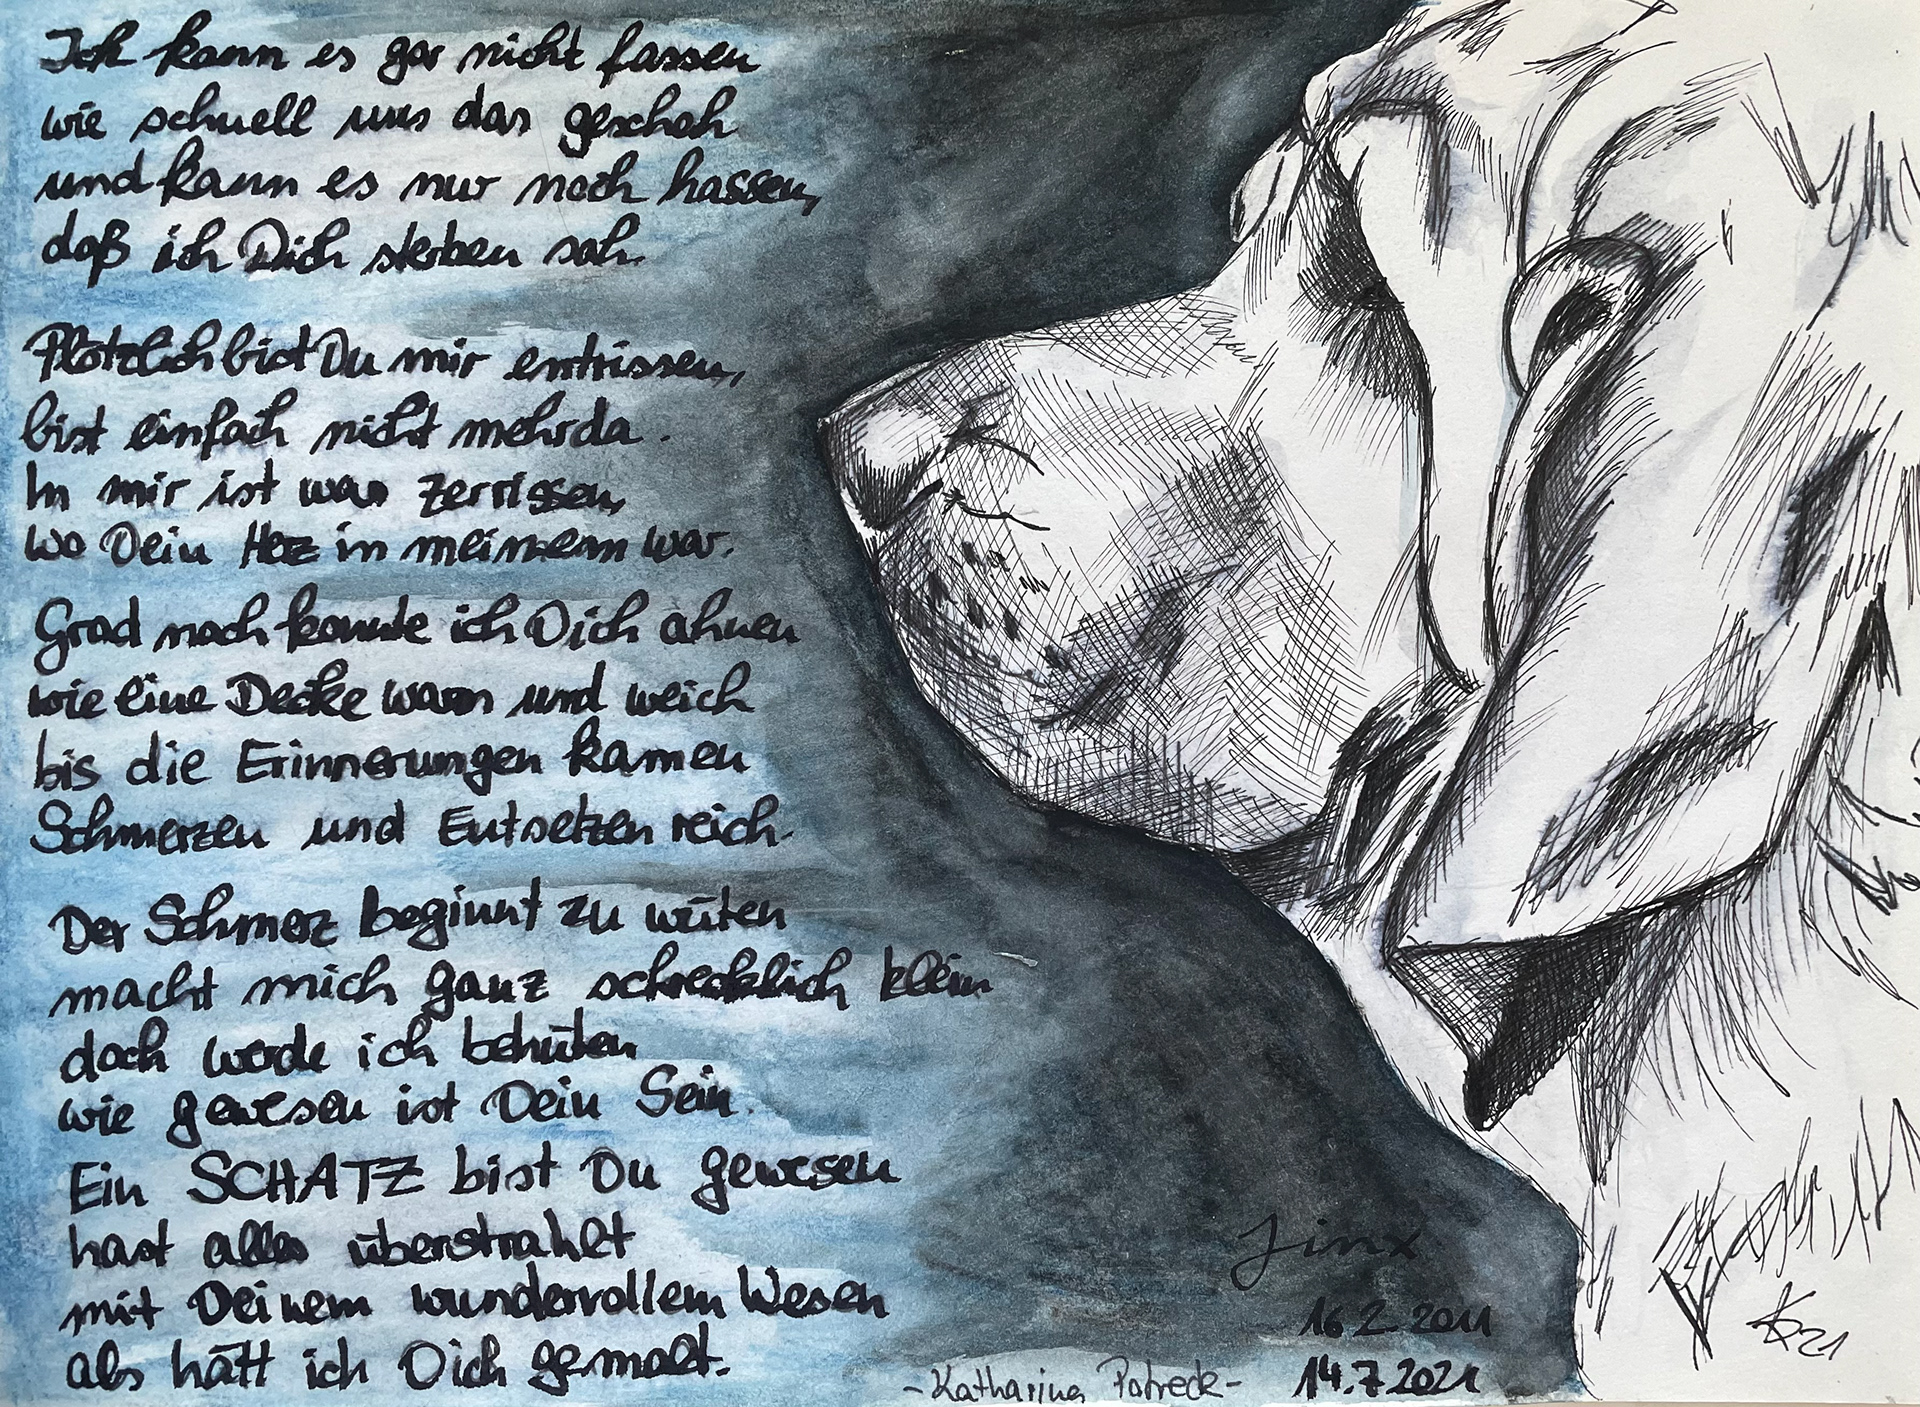 Ich kann es gar nicht fassen
wie schnell uns das geschah
und kann es nur noch hassen,
daß ich Dich sterben sah.
Plötzlich bist Du mir entrissen,
bist einfach nicht mehr da.
In mir ist was zerrissen,
wo Dein Herz in meinem war.
Grad noch konnte ich Dich ahnen
wie eine Decke warm und weich
bis die Erinnerungen kamen
Schmerzen und Entsetzen reich.
Der Schmerz beginnt zu wüten
macht mich ganz schrecklich klein
doch werde ich behüten
wie gewesen ist Dein Sein.
Ein SCHATZ bist Du gewesen
hast alles überstrahlt
mit Deinem wundervollem Wesen
als hätt ich Dich gemalt.
Jinx
16.2.2011
14.7.2021
-Katharina Patreck-
21